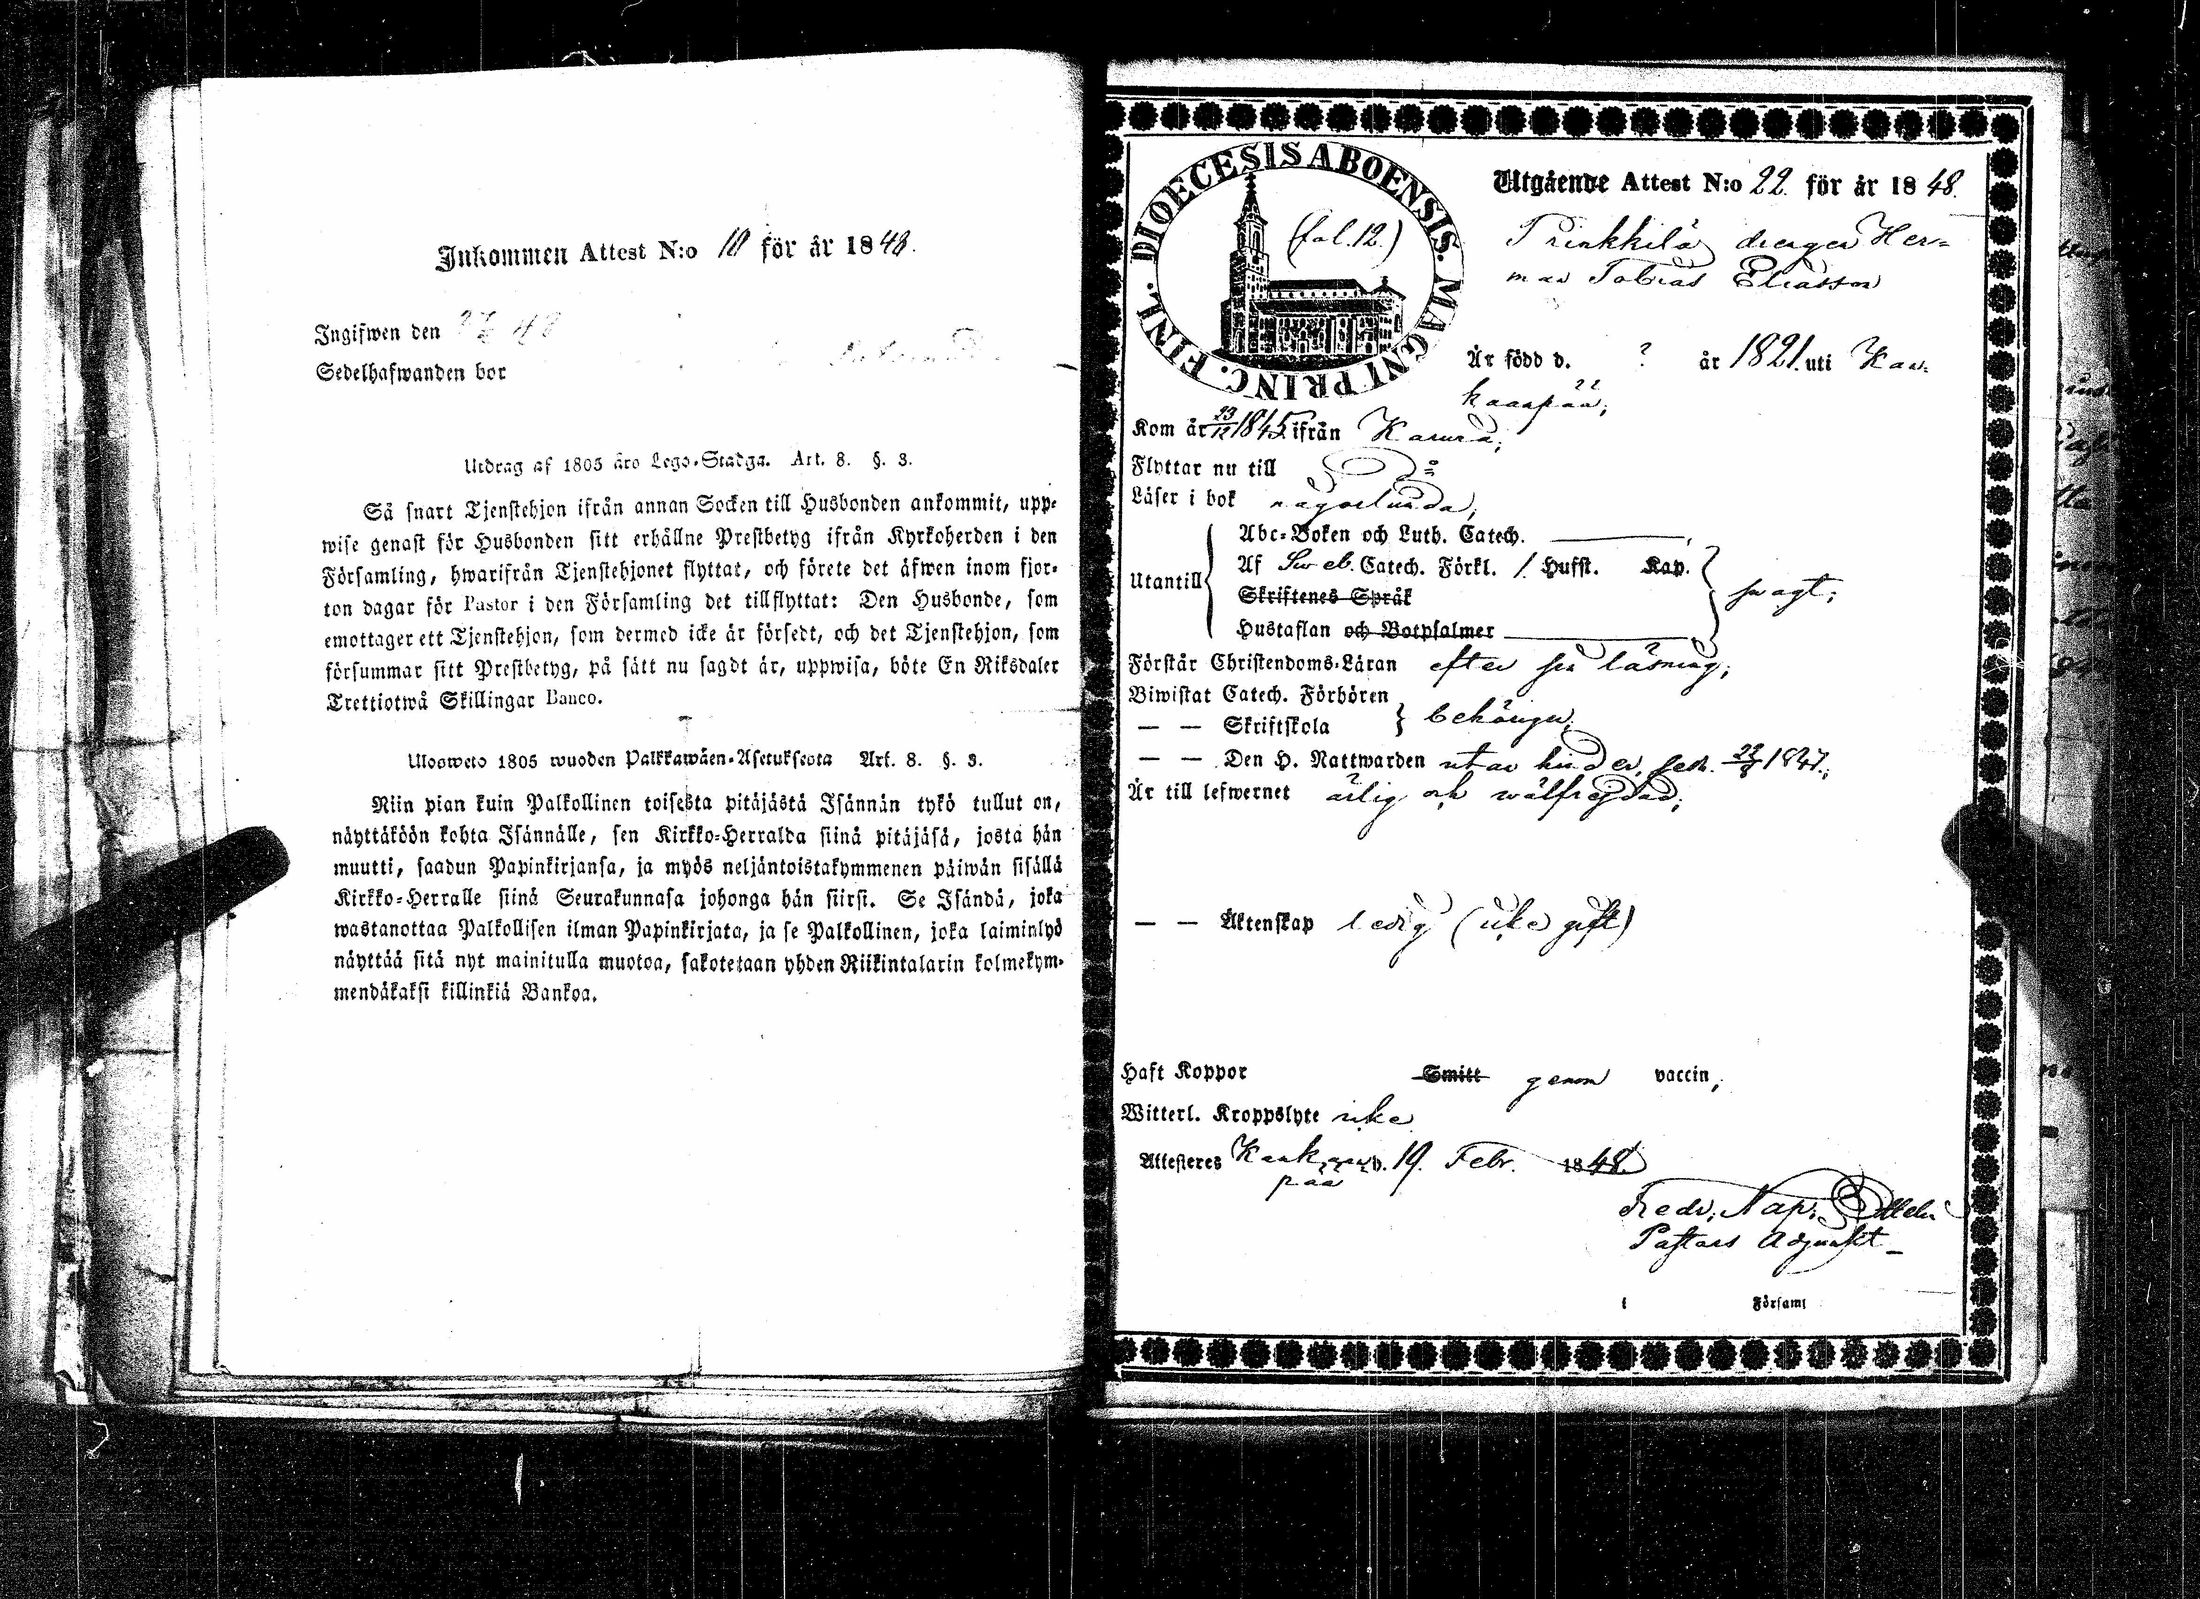 Inkommen Attest N:o 10 för år 1848.
Ingifwen den 48
Sedelhafwanden bor
Utdrag af 1805 års Lego-Stadga. Art. 8. §. 3.
Så snart Tjenstehjon ifrån annan Socken till Husbonden ankommit, upp-
wise genast för Husbonden sitt erhållne Prestbetyg ifrån Kyrkoherden i den
Församling, hwarifrån Tjenstehjonet flyttat, och förete det äfwen inom fjor-
ton dagar för Pastor i den Församling det tillflyttat: Den Husbonde, som
emottager ett Tjenstehjon, som dermed icke är försedt, och det Tjenstehjon, som
försummar sitt Prestbetyg, på sätt nu sagdt är, uppwisa, böte En Riksdaler
Trettiotwå Skillingar Banco.
Ulosweto 1805 wuoden Palkkawäen-Asetuksesta Art. 8. §. 3.
Niin pian kuin Palkollinen toisesta pitäjästä Isännän tykö tullut on,
näyttäköön kohta Isännälle, sen Kirkko-Herralda siinä pitäjäsä, josta hän
muutti, saadun Papinkirjansa, ja myös neljäntoistakymmenen päiwän sisällä
Kirkko-Herralle siinä Seurakunnasa johonga hän siirsi. Se Isändä, joka
wastanottaa Palkollisen ilman Papinkirjata, ja se Palkollinen, joka laiminlyö
näyttää sitä nyt mainitulla muotoa, sakotetaan yhden Riikintalarin kolmekym-
mendäkaksi killinkiä Bankoa.
DIOECESIS ABOENSIS. MAGNI PRINC. FINL.
(fol. 12.)
Utgående Attest N:o 22. för år 1848.
Prinkkilä drengen Her-
man Tobias Eliasson
Är född d. ? år 1821. uti Kan-
kaanpää;
Kom år 23/12 1845. ifrån Karvia;
Flyttar nu till
Läser i bok någorlunda;
Abc-Boken och Luth. Catech.
Utantill Af Sveb. Catech. Förkl. 1. Hufst. Kap. swagt;
Skriftenes Språk
Hustaflan och Botpsalmer
Förstår Christendoms-Läran efter sin läsning;
Biwistat Catech. Förhören
— — Skriftskola behörigen;
— — Den H. Nattwarden utan hinder, sedn. 1847.;
Är till lefwernet ärlig och wälfrejdad;
— — Äktenskap ledig (icke gift)
Haft Koppor Smitt genom vaccin;
Witterl. Kroppslyte icke
Attesteres Kankaan- d. 19. Febr. 1848.
pää
Fredr. Nap.
Pastors Adjunkt
i Församl